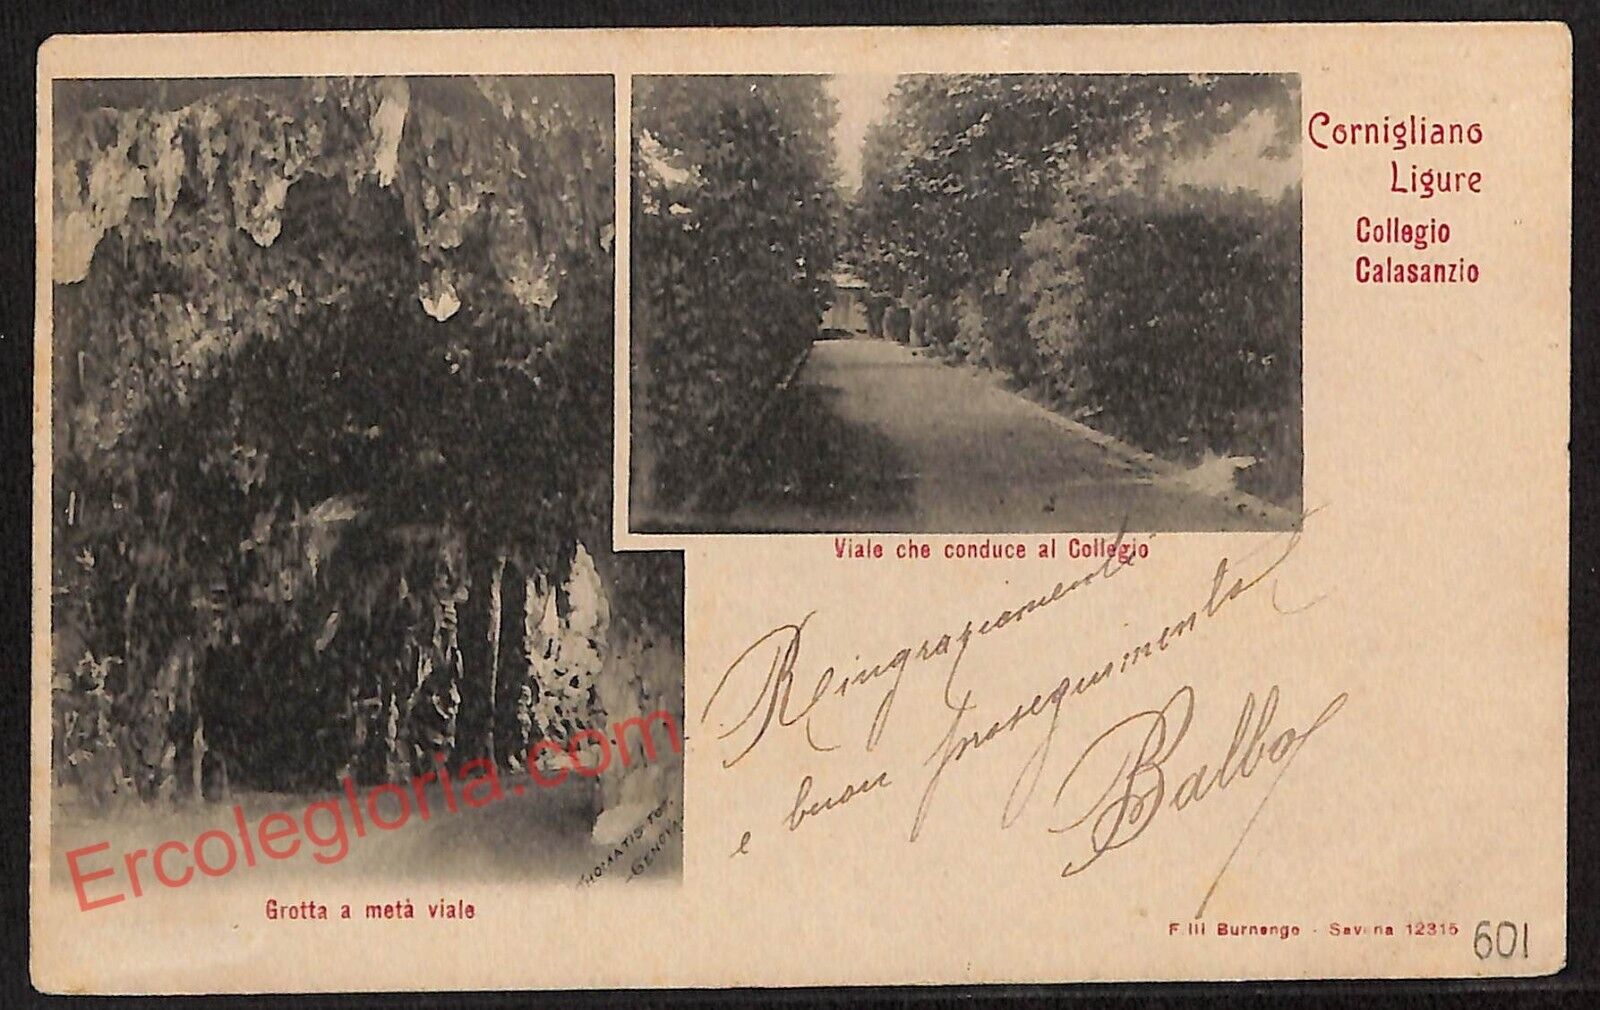 Cornigliano
Ligure
Collegio
Calasanzio
Viale che conduce al Collegio
Ringraziamenti
e buon proseguimento
Balbo
Grotta a metà viale
THOMATIS FOT.
GENOVA
Ercolegloria.com
F.lli Burnengo - Savona 12315
601